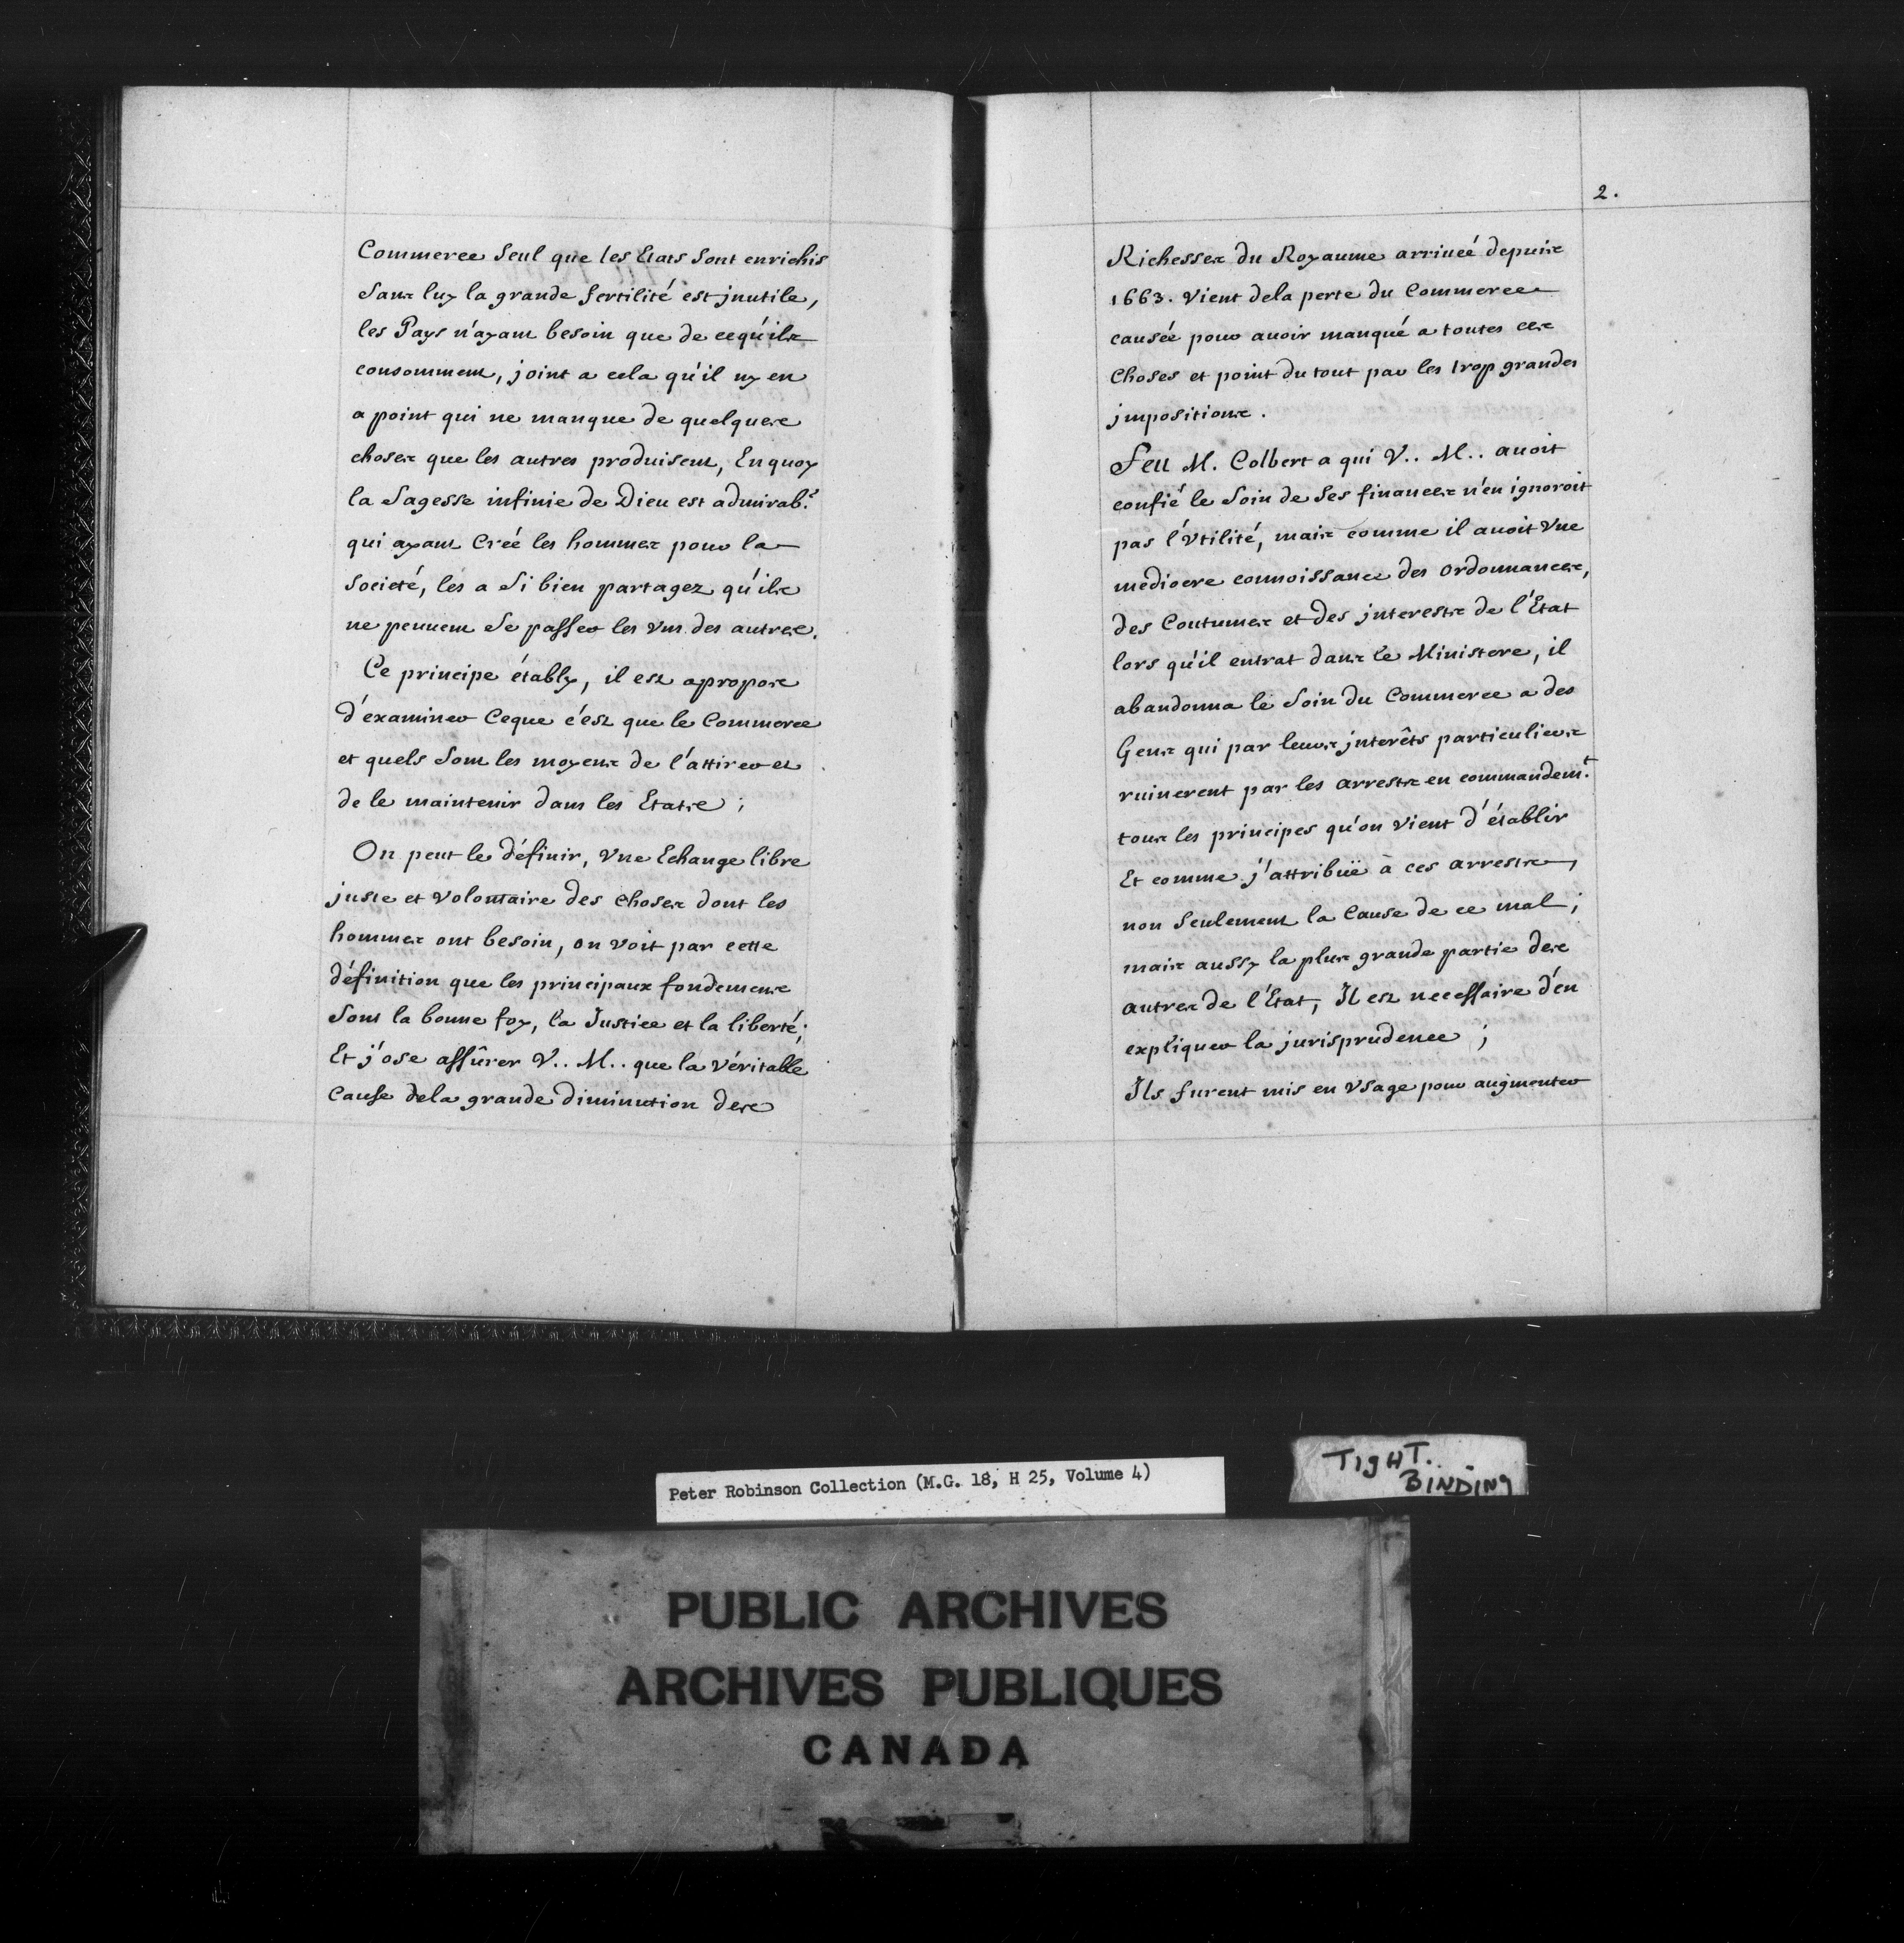 Commerce Seul que les Etats Sont enrichis
Sans luy la grande fertilité est jnutile,
les Pays n'ayant besoin que de cequ'ils
consomment, joint a cela qu'il ny en
a point qui ne manque de quelques
choses que les autres produisent, Enquoy
la Sagesse infinie de Dieu est admirab.e
qui ayant Créé les hommes pour la
Societé, les a Si bien partagez qu'ils
ne peuuent Se passer les vns des autres.
Ce principe étably, il est apropos
d'examiner Ceque c'est que le Commerce
et quels Sont les moyens de l'attirer et
de le maintenir dans les Etats ;
On peut le définir, Vne Echange libre
juste et volontaire des choses dont les
hommes ont besoin, on voit par cette
définition que les principaux fondemens
Sont la bonne foy, la Justice et la liberté;
Et j'ose assûrer V.. M.. que la véritable
Cause dela grande diminution des
2.
Richesses du Royaume arriueé depuis
1663. vient dela perte du Commerce
causée pour auoir manqué a toutes ces
Choses et point du tout par les trop grandes
jmpositions.
Feu M. Colbert a qui V.. M.. auoit
confié le Soin de Ses finances n'en ignoroit
pas l'Vtilité, mais comme il auoit Vne
mediocre connoissance des ordonnances,
des Coutumes et des jnterests de l'Etat
lors qu'il entrat dans le Ministere, il
abandonna le Soin du Commerce a des
Gens qui par leurs jnterêts particuliers
ruinerent par les arrests en commandem.t
tous les principes qu'on vient d'établir
Et comme j'attribüe à ces arrests,
non Seulement la Cause de ce mal ;
mais aussy la plus grande partie des
autres de l'Etat, Il est necessaire d'en
expliquer la jurisprudence ;
Ils furent mis en Vsage pour augmenter
Peter Robinson Collection (M.G. 18, H 25, Volume 4)
TIGHT.
BINDING
PUBLIC ARCHIVES
ARCHIVES PUBLIQUES
CANADA